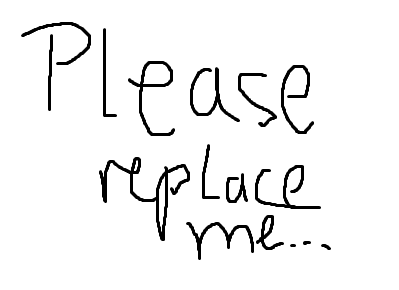 Please
replace
me...